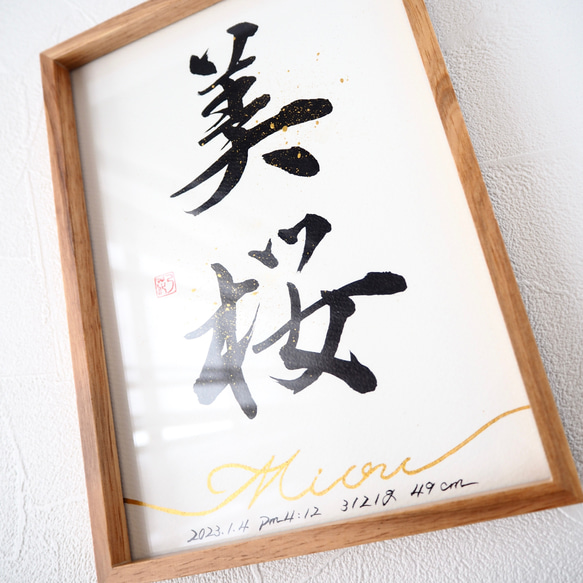 美桜
Miou
2023.1.4 pm4:12 3121g 49cm